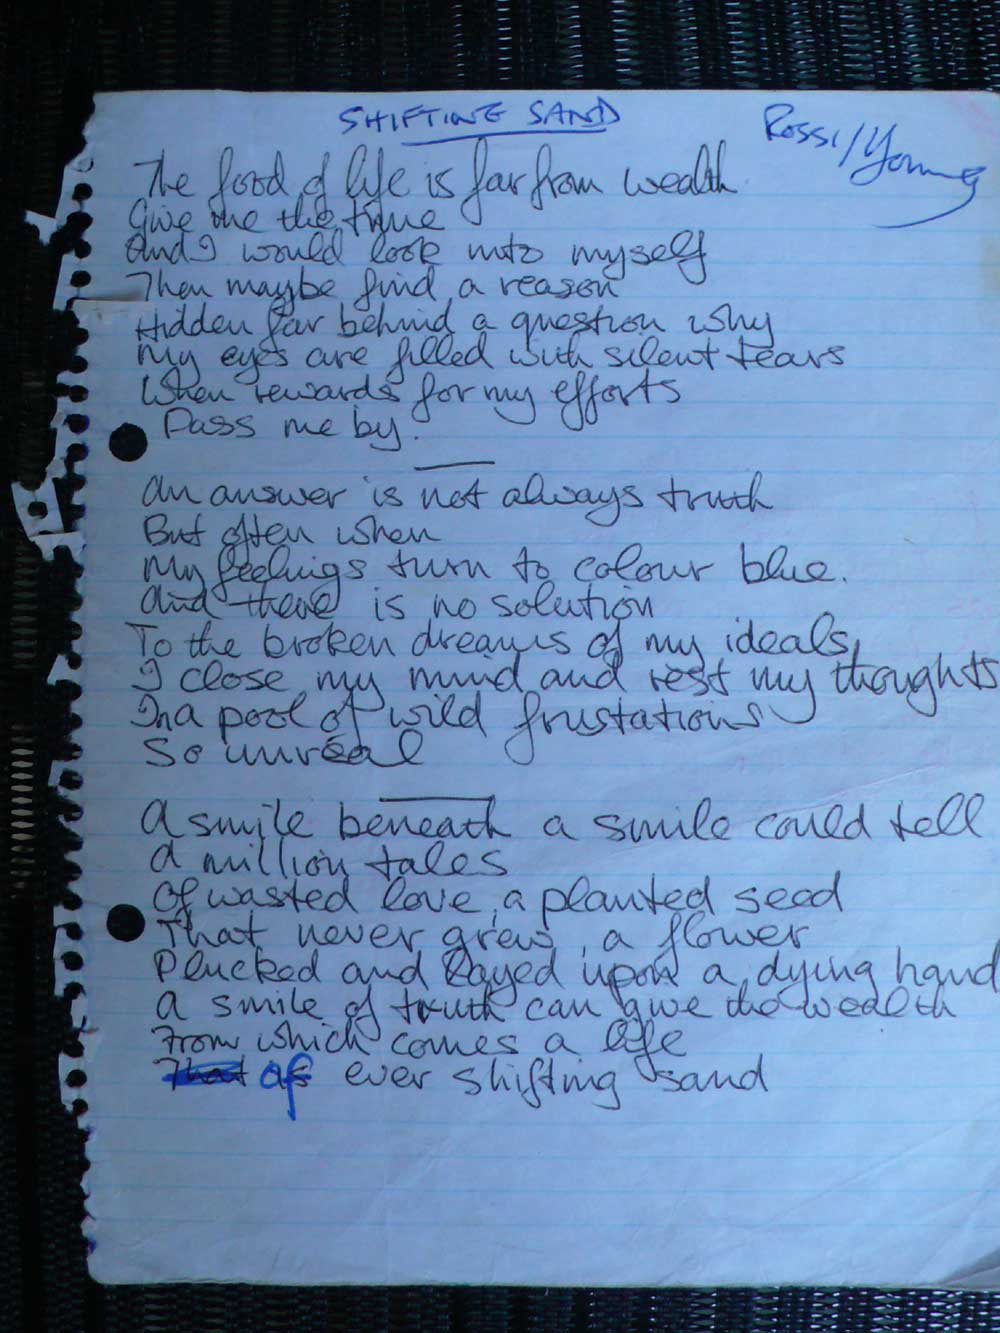 SHIFTING SAND
Rossi/Young
The food of life is far from wealth
Give me the time
And I would look into myself
Then maybe find a reason
Hidden far behind a question why
My eyes are filled with silent tears
When rewards for my efforts
Pass me by.
An answer is not always truth
But often when
My feelings turn to colour blue.
And there is no solution
To the broken dreams of my ideals,
I close my mind and rest my thoughts
In a pool of wild frustations
So unreal
A smile beneath a smile could tell
A million tales
Of wasted love, a planted seed
That never grew, a flower
Plucked and layed upon a dying hand
A smile of truth can give the wealth
From which comes a life
That of ever shifting sand